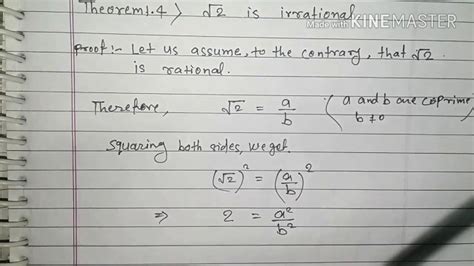 Theorem1.4 > √2 is irrational
Made with KINEMASTER
Proof:- Let us assume, to the contrary, that √2
is rational.
Therefore, √2 = a/b (a and b are coprime
b ≠ 0
Squaring both sides, we get
(√2)² = (a/b)²
⇒ 2 = a²/b²